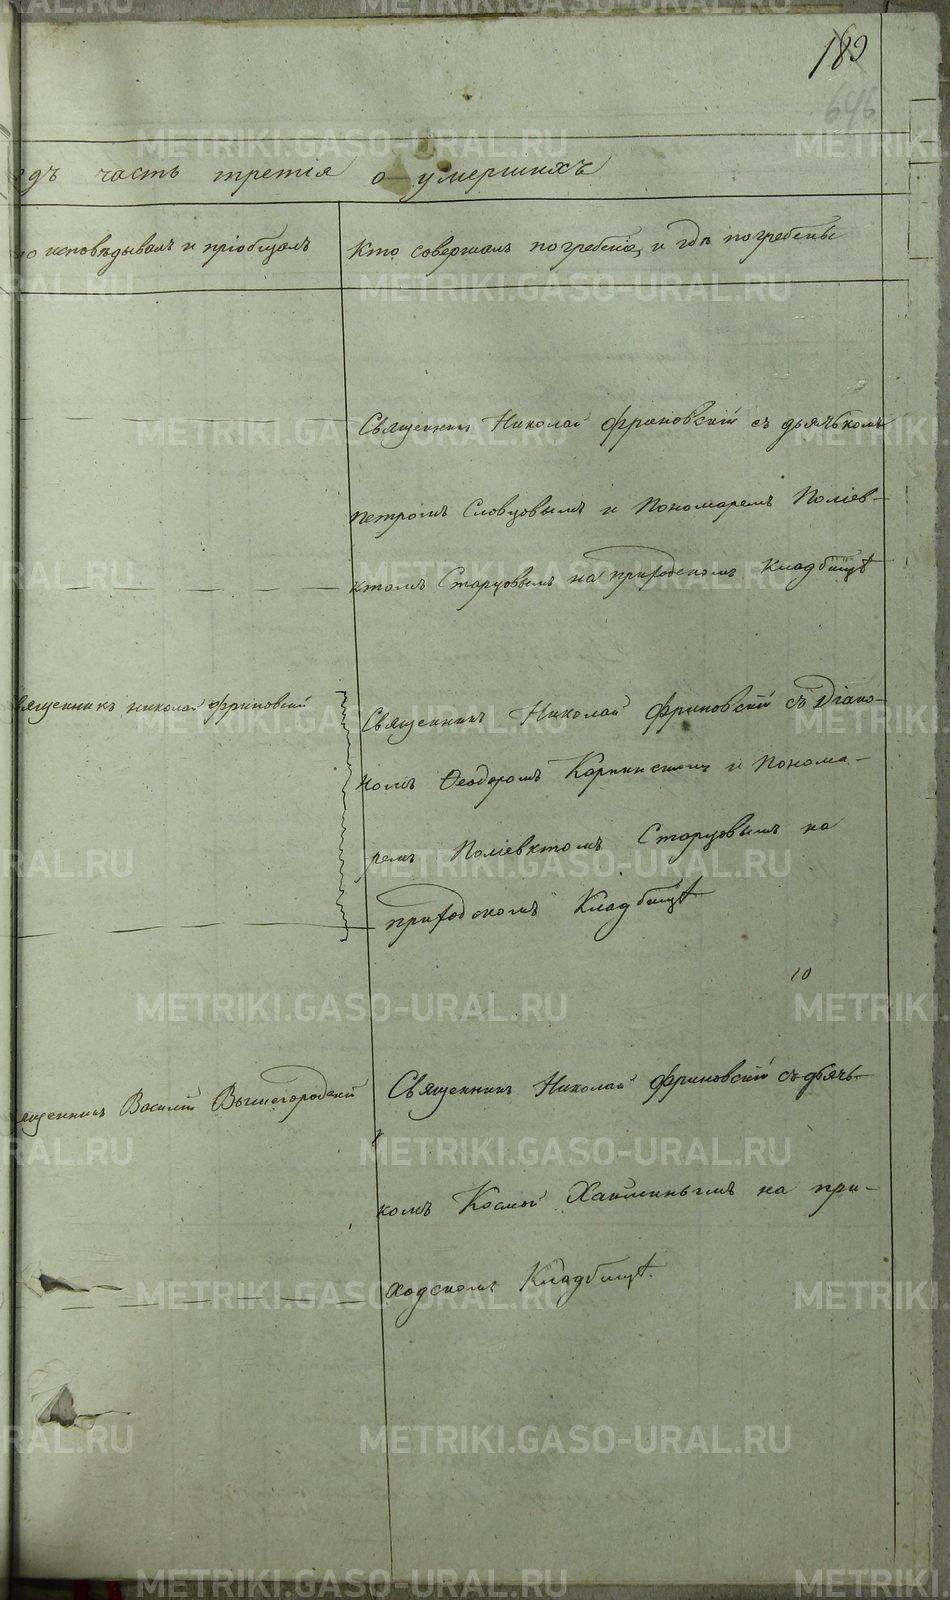 189
646
одъ часть третія о умершихъ
то исповѣдывалъ и пріобщалъ
Кто совершалъ погребеніе, и гдѣ погребены
Священникъ Николай Фриновскій съ дьячькомъ
Петромъ Словцовымъ и Пономаремъ Поліев-
ктомъ Старцовымъ на приходскомъ Кладбищѣ
вященникъ николай Фриновскій
Священникъ Николай Фриновскій съ Діако-
номъ Ѳеодоромъ Карпинскимъ и Понома-
ремъ Поліевктомъ Старцовымъ на
приходскомъ Кладбищѣ
10
ященникъ Василій Вышегородскій
Священникъ Николай Фриновскій съ дьячь-
комъ Космой Хаиминымъ на при-
ходскомъ Кладбищѣ.
METRIKI.GASO-URAL.RU